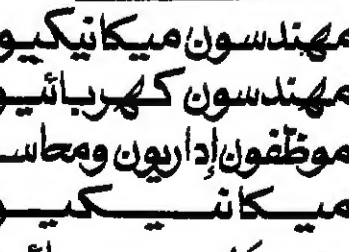 مهندسون ميكانيكيو
مهندسون كهربائيو
موظفون إداريون ومحاس
ميكانيكيـ